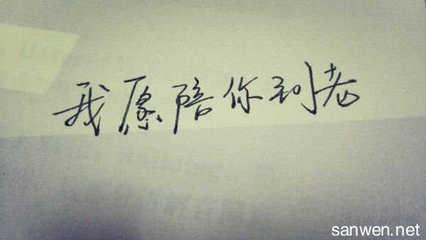 我愿陪你到老
sanwen.net